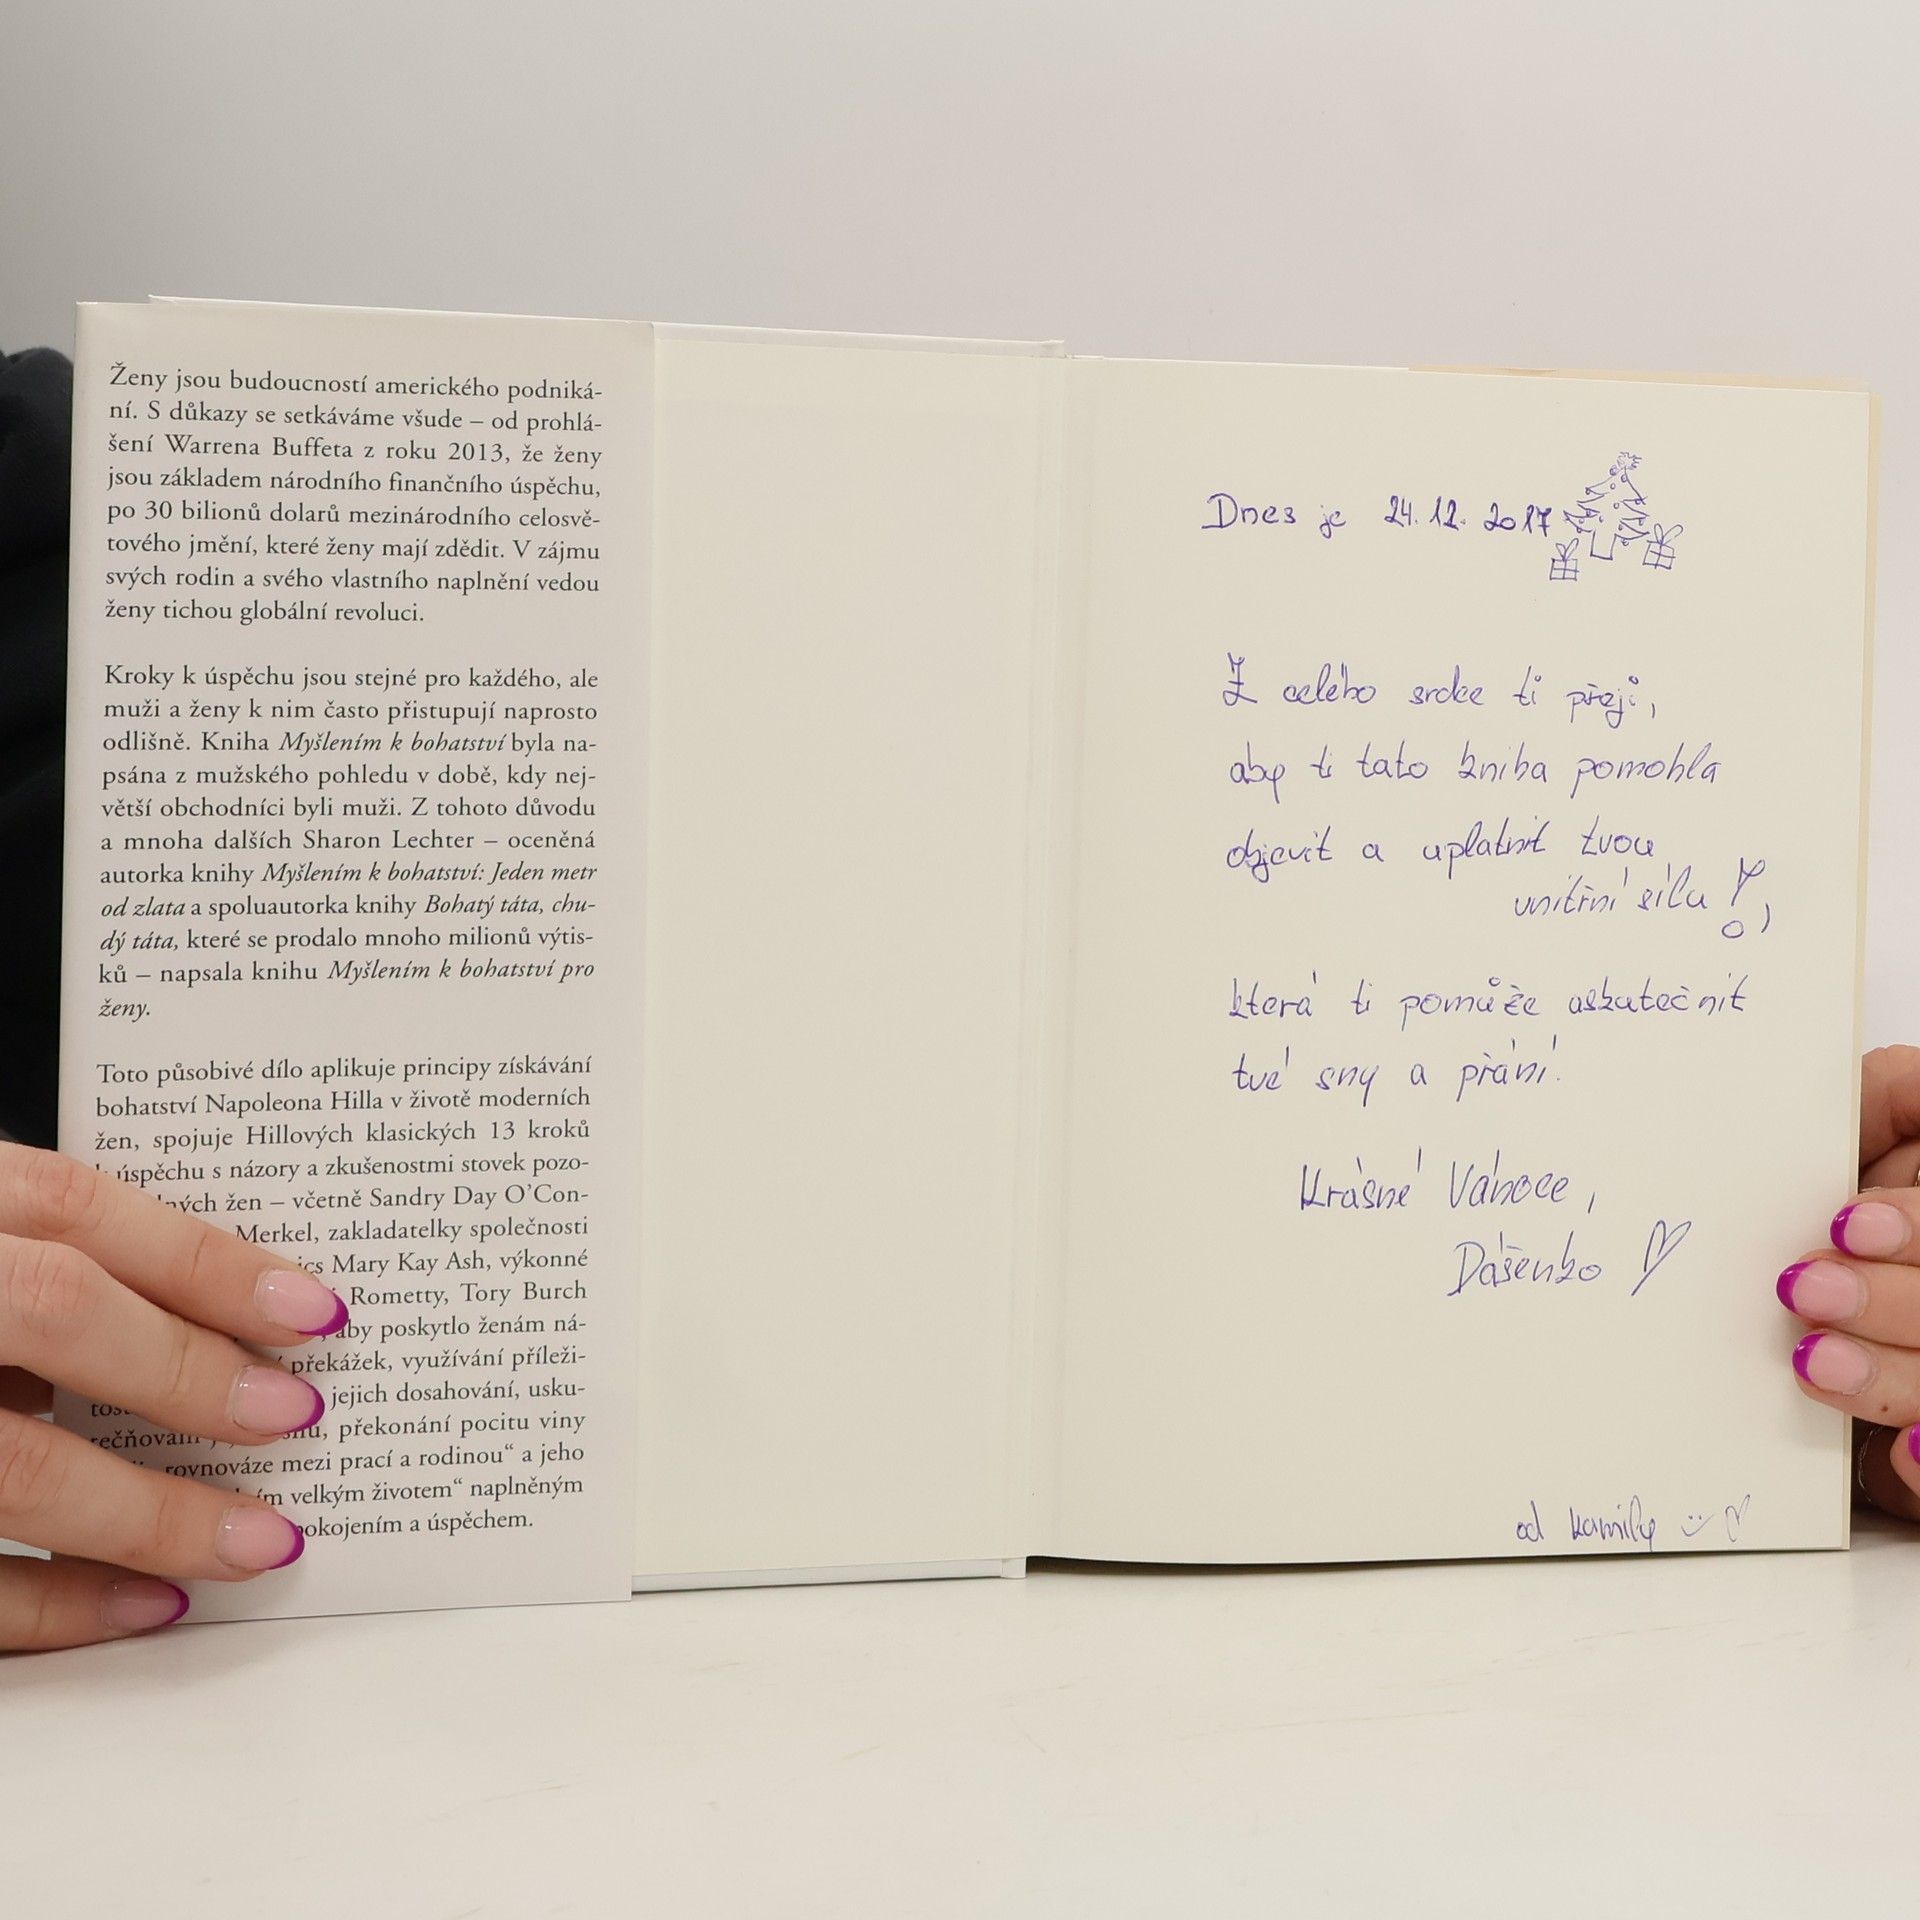 Ženy jsou budoucností amerického podniká-
ní. S důkazy se setkáváme všude – od prohlá-
šení Warrena Buffeta z roku 2013, že ženy
jsou základem národního finančního úspěchu,
po 30 bilionů dolarů mezinárodního celosvě-
tového jmění, které ženy mají zdědit. V zájmu
svých rodin a svého vlastního naplnění vedou
ženy tichou globální revoluci.
Kroky k úspěchu jsou stejné pro každého, ale
muži a ženy k nim často přistupují naprosto
odlišně. Kniha Myšlením k bohatství byla na-
psána z mužského pohledu v době, kdy nej-
větší obchodníci byli muži. Z tohoto důvodu
a mnoha dalších Sharon Lechter – oceněná
autorka knihy Myšlením k bohatství: Jeden metr
od zlata a spoluautorka knihy Bohatý táta, chu-
dý táta, které se prodalo mnoho milionů výtis-
ků – napsala knihu Myšlením k bohatství pro
ženy.
Toto působivé dílo aplikuje principy získávání
bohatství Napoleona Hilla v životě moderních
žen, spojuje Hillových klasických 13 kroků
úspěchu s názory a zkušenostmi stovek pozo-
žen – včetně Sandry Day O’Con-
Merkel, zakladatelky společnosti
Mary Kay Ash, výkonné
Rometty, Tory Burch
aby poskytlo ženám ná-
překážek, využívání příleži-
jejich dosahování, usku-
překonání pocitu viny
rovnováze mezi prací a rodinou“ a jeho
velkým životem“ naplněným
a úspěchem.
Dnes je 24.12.2017
Z celého srdce ti přeji,
aby ti tato kniha pomohla
objevit a uplatnit tvou
vnitřní sílu!,
která ti pomůže uskutečnit
tvé sny a přání.
Krásné Vánoce,
Dášenko
od Kamily